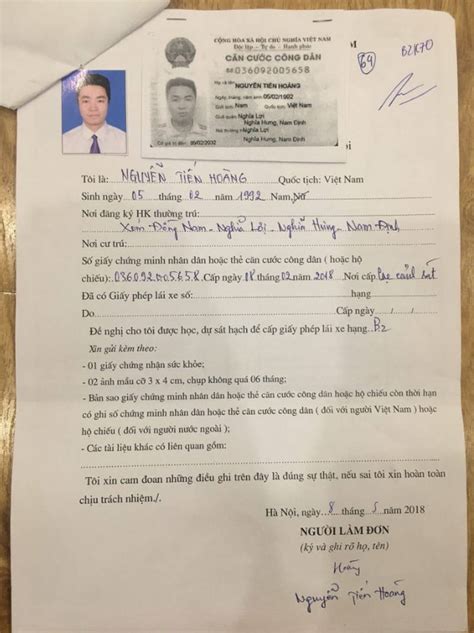 CỘNG HÒA XÃ HỘI CHỦ NGHĨA VIỆT NAM
Độc lập - Tự do - Hạnh phúc
CĂN CƯỚC CÔNG DÂN
Số 036092005658
Họ và tên: NGUYỄN TIẾN HOÀNG
Ngày, tháng, năm sinh: 05/02/1992
Giới tính: Nam Quốc tịch: Việt Nam
Quê quán: Nghĩa Lợi
Nghĩa Hưng, Nam Định
Nơi thường trú: Nghĩa Lợi
Nghĩa Hưng, Nam Định
Có giá trị đến: 05/02/2032
M
64
B2K70
ại
Tôi là: NGUYỄN TIẾN HOÀNG Quốc tịch: Việt Nam
Sinh ngày 05 tháng 02 năm 1992 Nam, Nữ
Nơi đăng ký HK thường trú:
Xóm - Đồng Nam - Nghĩa Lợi - Nghĩa Hưng - Nam - Định
Nơi cư trú:
Số giấy chứng minh nhân dân hoặc thẻ căn cước công dân ( hoặc hộ
chiếu): 036092005658. Cấp ngày 08 tháng 02 năm 2018 Nơi cấp
Đã có Giấy phép lái xe số: hạng
Do Cấp ngày / /
Đề nghị cho tôi được học, dự sát hạch để cấp giấy phép lái xe hạng B2
Xin gửi kèm theo:
- 01 giấy chứng nhận sức khỏe;
- 02 ảnh mẫu cỡ 3 x 4 cm, chụp không quá 06 tháng;
- Bản sao giấy chứng minh nhân dân hoặc thẻ căn cước công dân hoặc hộ chiếu còn thời hạn
có ghi số chứng minh nhân dân hoặc thẻ căn cước công dân ( đối với người Việt Nam ) hoặc
hộ chiếu ( đối với người nước ngoài );
- Các tài liệu khác có liên quan gồm:
Tôi xin cam đoan những điều ghi trên đây là đúng sự thật, nếu sai tôi xin hoàn toàn
chịu trách nhiệm./.
Hà Nội, ngày 8 tháng 5 năm 2018
NGƯỜI LÀM ĐƠN
(ký và ghi rõ họ, tên)
Hoàng
Nguyễn Tiến Hoàng